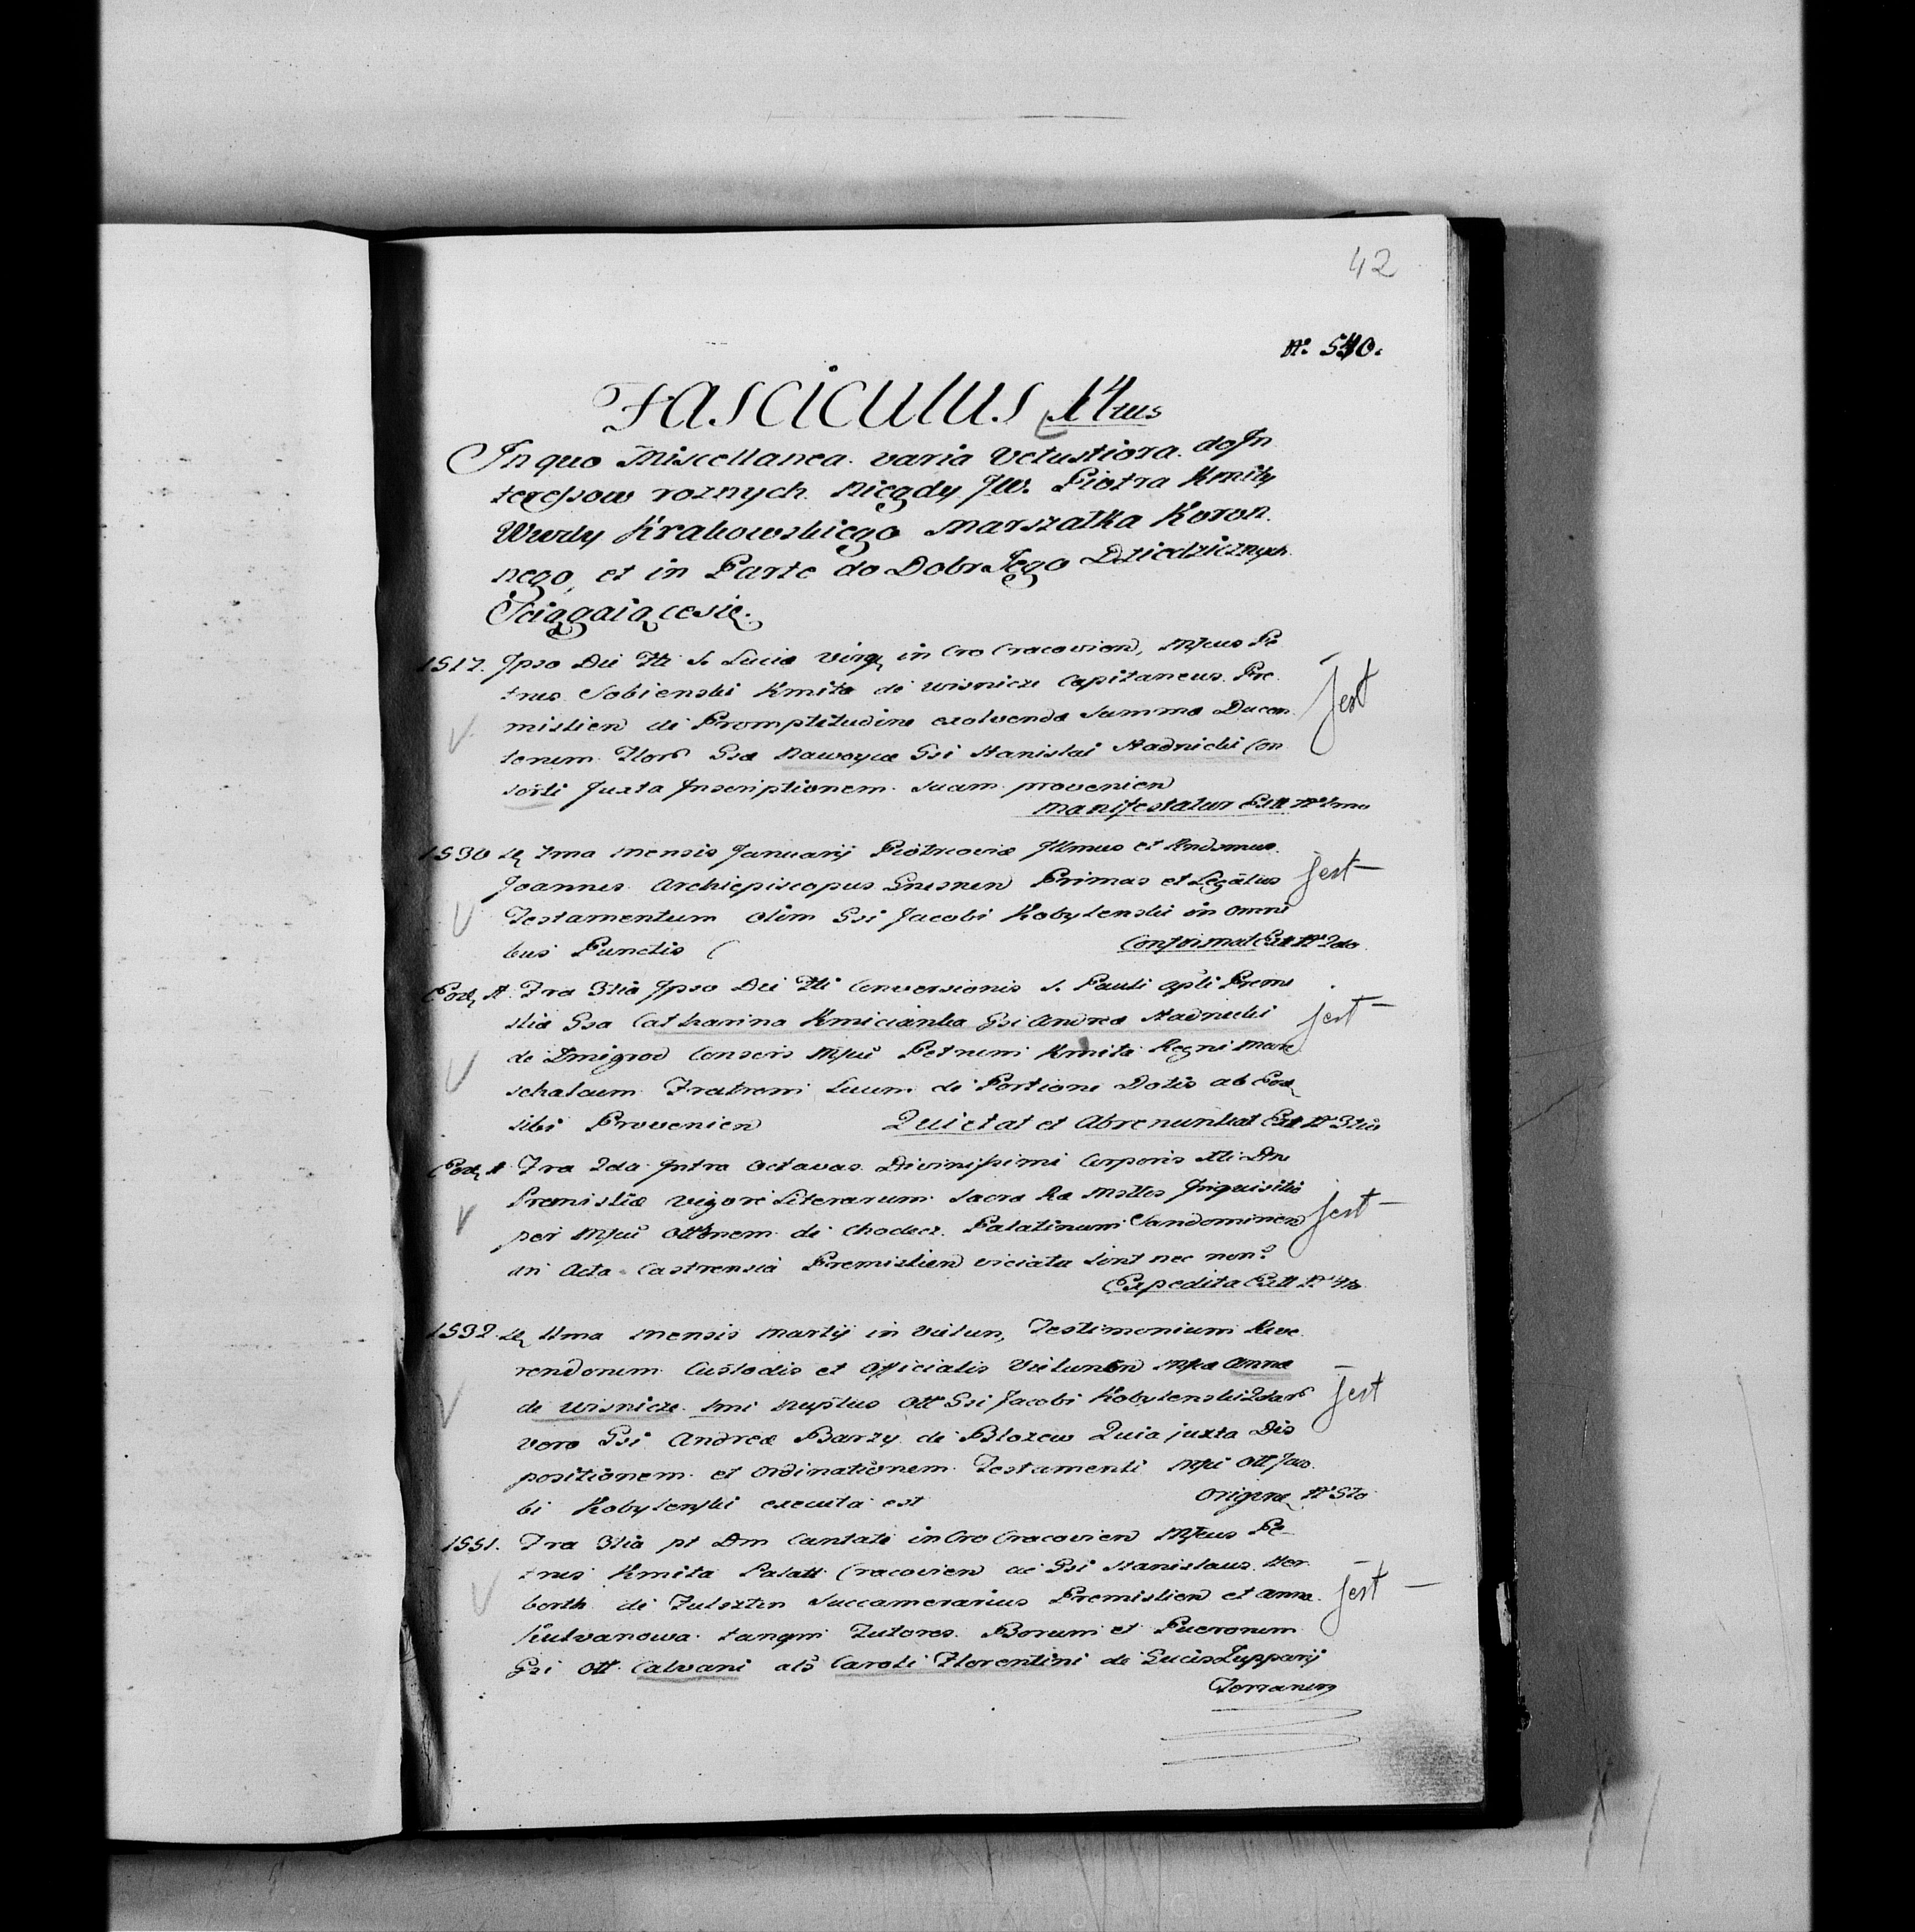 42
N° 540.
Fasciculus 14tus
In quo Miscellanea varia Vetustiora do In
teressow roznych niegdy JW. Piotra Kmity
Wwdy Krakowskiego Marszałka Koron
nego, et in Parte do Dobr Jego Dziedzicznych
Sciągaiącesię.
1517. Ipso Die Fti S. Lucia Virg in Cro Cracovien, Mfcus Pe
trus Sobienski Kmita de Wisnicze Capitaneus Pre
mislien de Promptitudine exolvenda Summa Ducen
torum Flor Gsa Nawoyca Gsi Stanislai Stadnicki Con
sorti Juxta Inscriptionem Suam provenien
Jest
Manifestatur Extt N° 1mo
1530 1ma mensis Januarij Piotrcovia Illmus et Rndmus
Joannes Archiepiscopus Gnesnen Primas et Legatus
Testamentum olim Gsi Jacobi Kobylenski in omni
bus Punctis
Jest
Confirmat Extt N° 2do
Eod A. Fra 3tia Ipso Die Fti Conversionis S. Pauli Apli Premi
slia Gsa Catharina Kmicianka Gsi Andrea Stadnicki
de Zmigrod Consors Mfcu Petrum Kmita Regni Mare
schalcum Fratrem Suum de Portione Dotis ab Eod
sibi Provenien
Jest
Quietat et Abrenuntiat Extt N° 3tio
Eod A Fra 2da Intra Octavas Divinissimi Corporis Xti Dni
Premislia vigore Literarum Sacra Ra Mttis Inquisitio
per Mfcu Ottonem de Chodecz Palatinum Sandomirien
an Acta Castrensia Premislien viciata sint nec non?
Jest
Expedita Extt N° 4to
1532 11ma mensis Martij in Vielun, Testimonium Reve
rendorum Custodis et Officialis Vielunen Mfca Anna
de Wisnicze 1mi Nuptus Ott Gsi Jacobi Kobylenski 2dar
vero Gsi Andrea Barzy de Blozew Quia juxta Dis
positionem et Ordinationem Testamenti Mfci Ott Jaco
bi Kobylenski executa est
Jest
Origine N° 5to
1551. Fra 3tia pt Dm Cantate in Cro Cracovien Mfcus Pe
trus Kmita Palatt Cracovien ac Gsi Stanislaus Her
borth de Fulsztin Succamerarius Premislien et Anna
Kulvanowa tanqm Tutores Borum et Puerorum
Gsi Ott Calvani als Caroli Florentini de Gucis Zupparij
Jest
Terranen